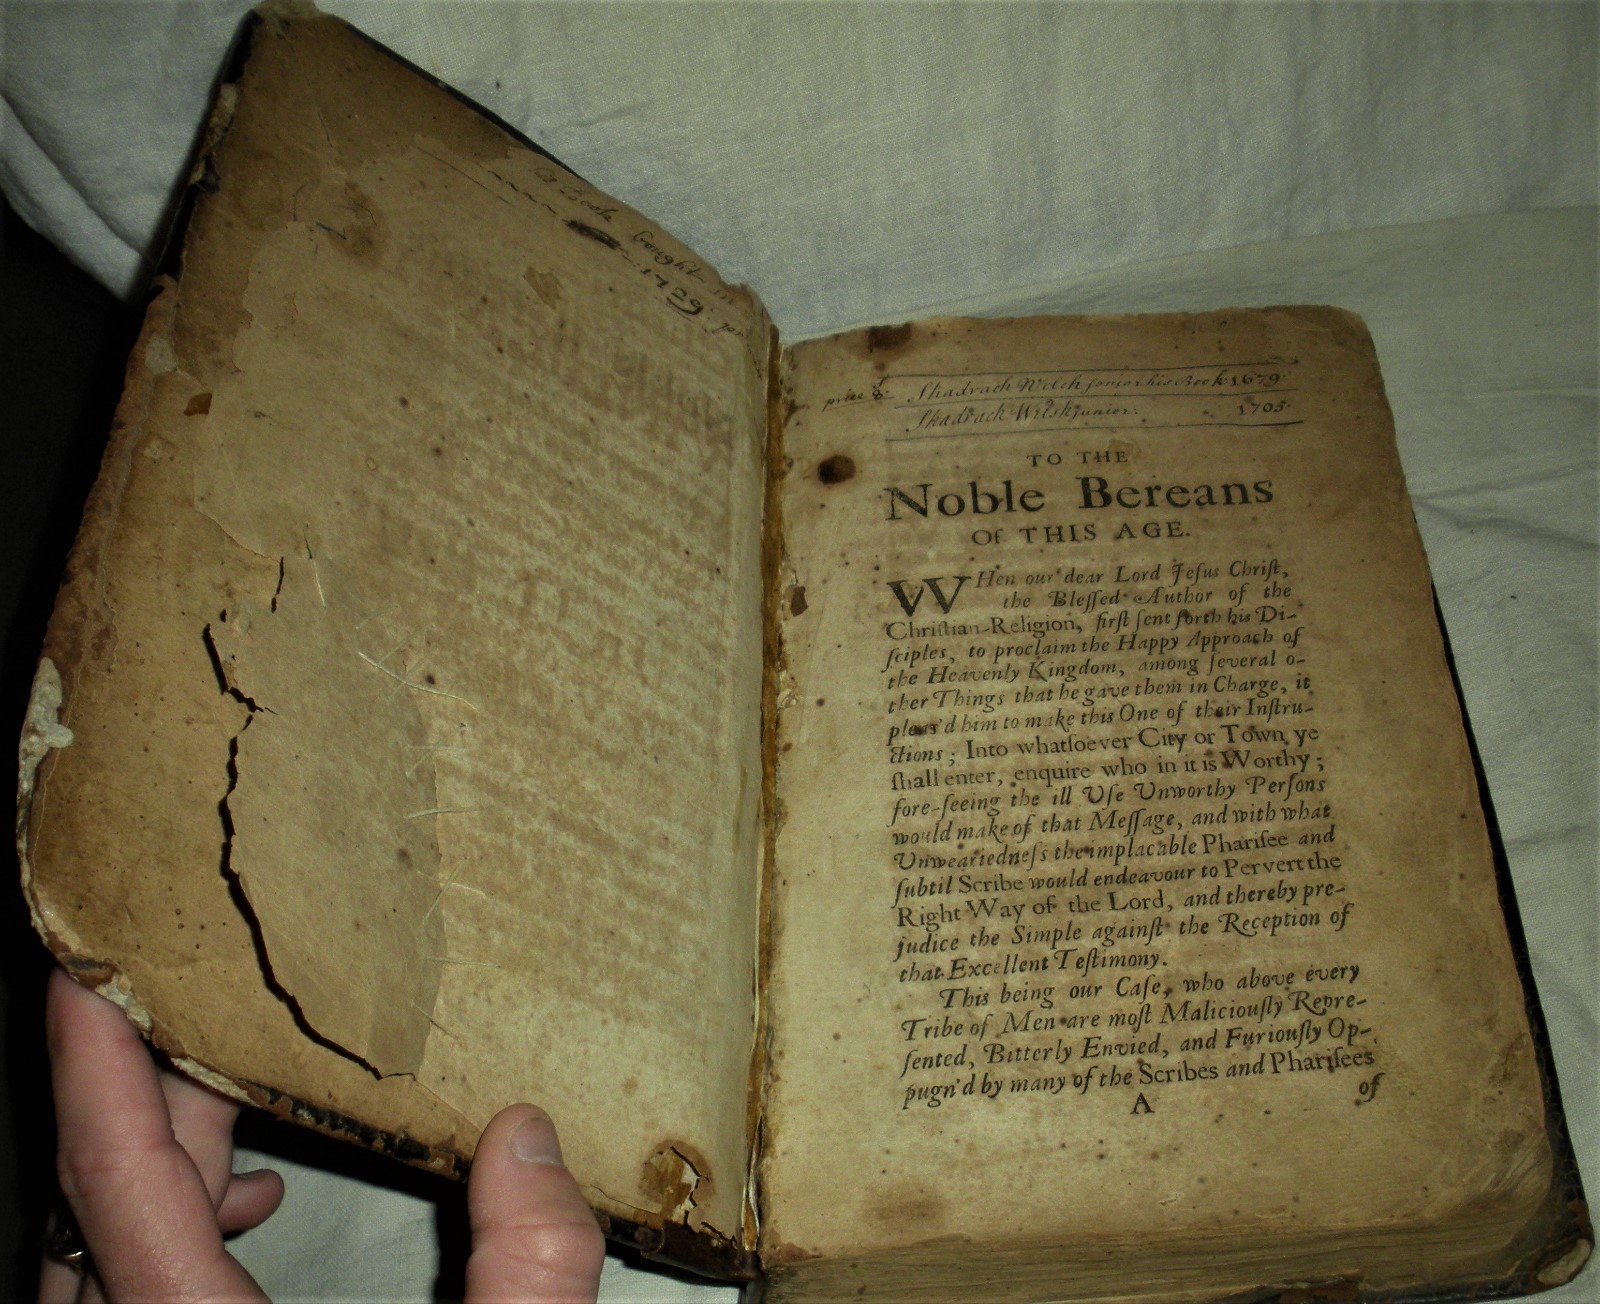 Book
bought in
1729. for
price 8
Shadrach Welch senior his Book: 1679.
Shadrach Welsh junior: 1705.
TO THE
Noble Bereans
Of THIS AGE.
WHen our dear Lord Jeſus Chriſt,
the Bleſſed Author of the
Chriſtian-Religion, firſt ſent forth his Di-
ſciples, to proclaim the Happy Approach of
the Heavenly Kingdom, among ſeveral o-
ther Things that he gave them in Charge, it
pleas'd him to make this One of their Inſtru-
ctions; Into whatſoever City or Town ye
ſhall enter, enquire who in it is Worthy;
fore-ſeeing the ill Uſe Unworthy Perſons
would make of that Meſſage, and with what
Unweariedneſs the implacable Phariſee and
ſubtil Scribe would endeavour to Pervert the
Right Way of the Lord, and thereby pre-
judice the Simple againſt the Reception of
that Excellent Teſtimony.
This being our Caſe, who above every
Tribe of Men are moſt Maliciouſly Repre-
ſented, Bitterly Envied, and Furiouſly Op-
pugn'd by many of the Scribes and Phariſees
A of